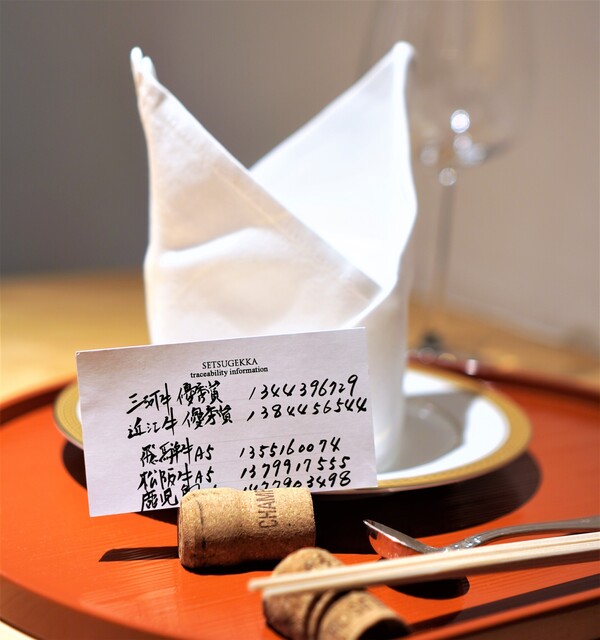 SETSUGEKKA
traceability information
三河牛 優秀賞 1344396729
近江牛 優秀賞 1384456544
飛騨牛A5 1355160074
松阪牛A5 1379917555
鹿児島
CHAM